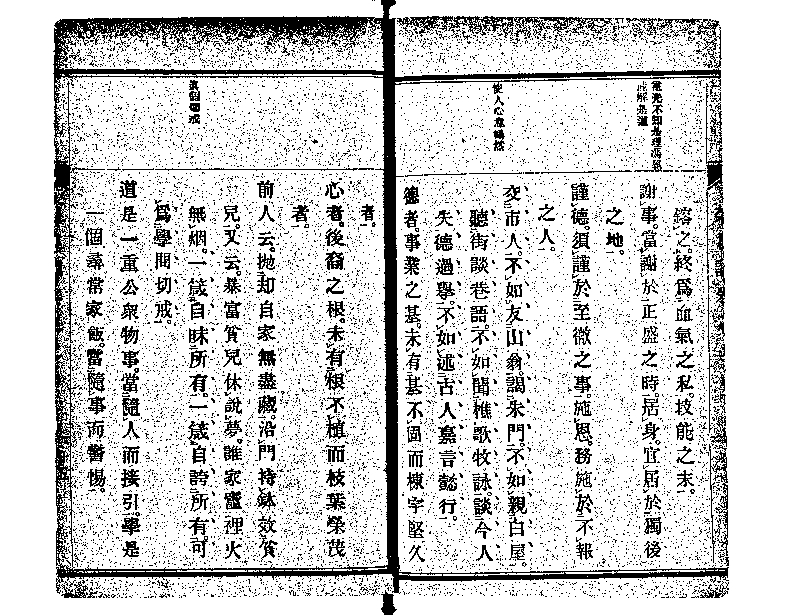 鎔之。終爲血氣之私。技能之末。
謝事。當謝於正盛之時。居身。宜居於獨後
之地。
謹德。須謹於至微之事。施恩。務施於不報
之人。
交市人。不如友山翁。謁朱門。不如親白屋。
聽街談巷語。不如聞樵歌牧詠。談今人
失德過擧。不如述古人嘉言懿行。
德者。事業之基。未有基不固而棟宇堅久
者。
心者。後裔之根。未有根不植而枝葉榮茂
者。
前人云。抛却自家無盡藏。沿門持鉢效貧
兒。又云。暴富貧兒休說夢。誰家竈裡火
無烟。一箴自昧所有。一箴自誇所有。可
爲學問切戒。
道是一重公衆物事。當隨人而接引。學是
一個尋常家飯。當隨事而警惕。
使人心意